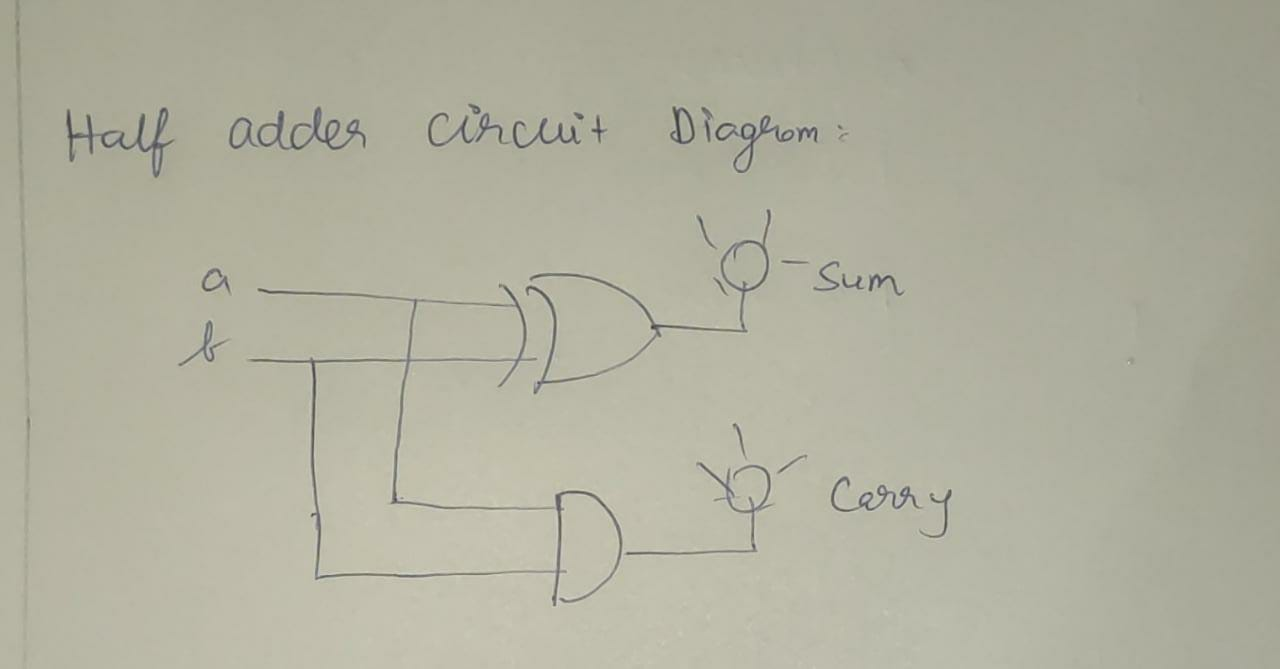 Half adder circuit Diagrom:
a
- Sum
b
Carry